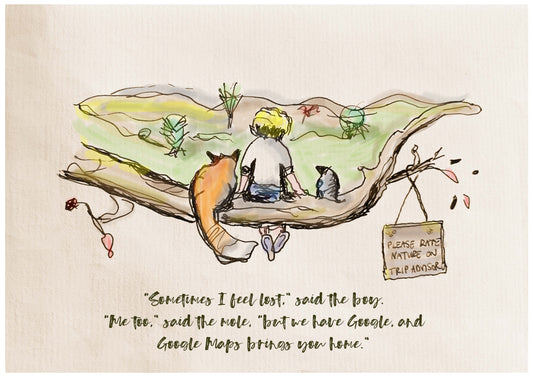 PLEASE RATE
NATURE ON
TRIP ADVISOR
"Sometimes I feel lost," said the boy.
"Me too," said the mole, "but we have Google, and
Google Maps brings you home."